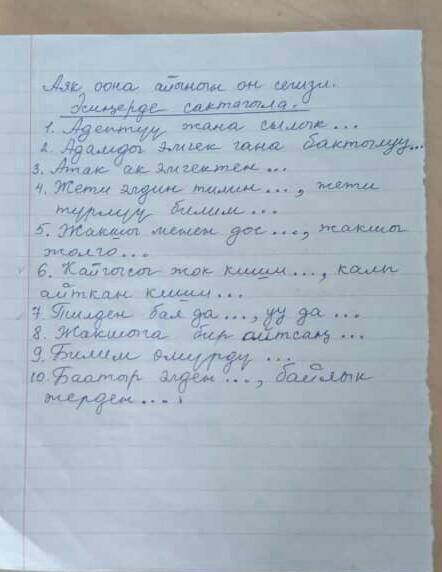 Аяк оона айынын он сегизи.
Эсиңерде сактагыла.
1. Адептүү жана сылык...
2. Адамды эмгек гана бактылуу...
3. Атак ак эмгектен...
4. Жети элдин тилин..., жети
түрлүү билим...
5. Жакшы менен дос..., жакшы
жолго...
6. Кайгысы жок киши..., калп
айткан киши...
7. Тилден бал да..., уу да...
8. Жакшыга бир айтсаң...
9. Билим өмүрдү...
10. Баатыр элден..., байлык
жерден....